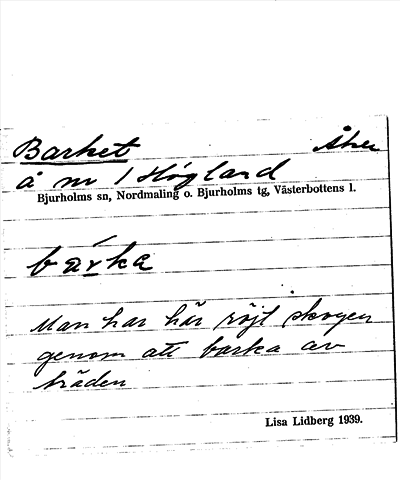 Barket Åker
å nr 1 Högland
Bjurholms sn, Nordmaling o. Bjurholms tg, Västerbottens l.
bárka
Man har här röjt skogen
genom att barka av
träden
Lisa Lidberg 1939.